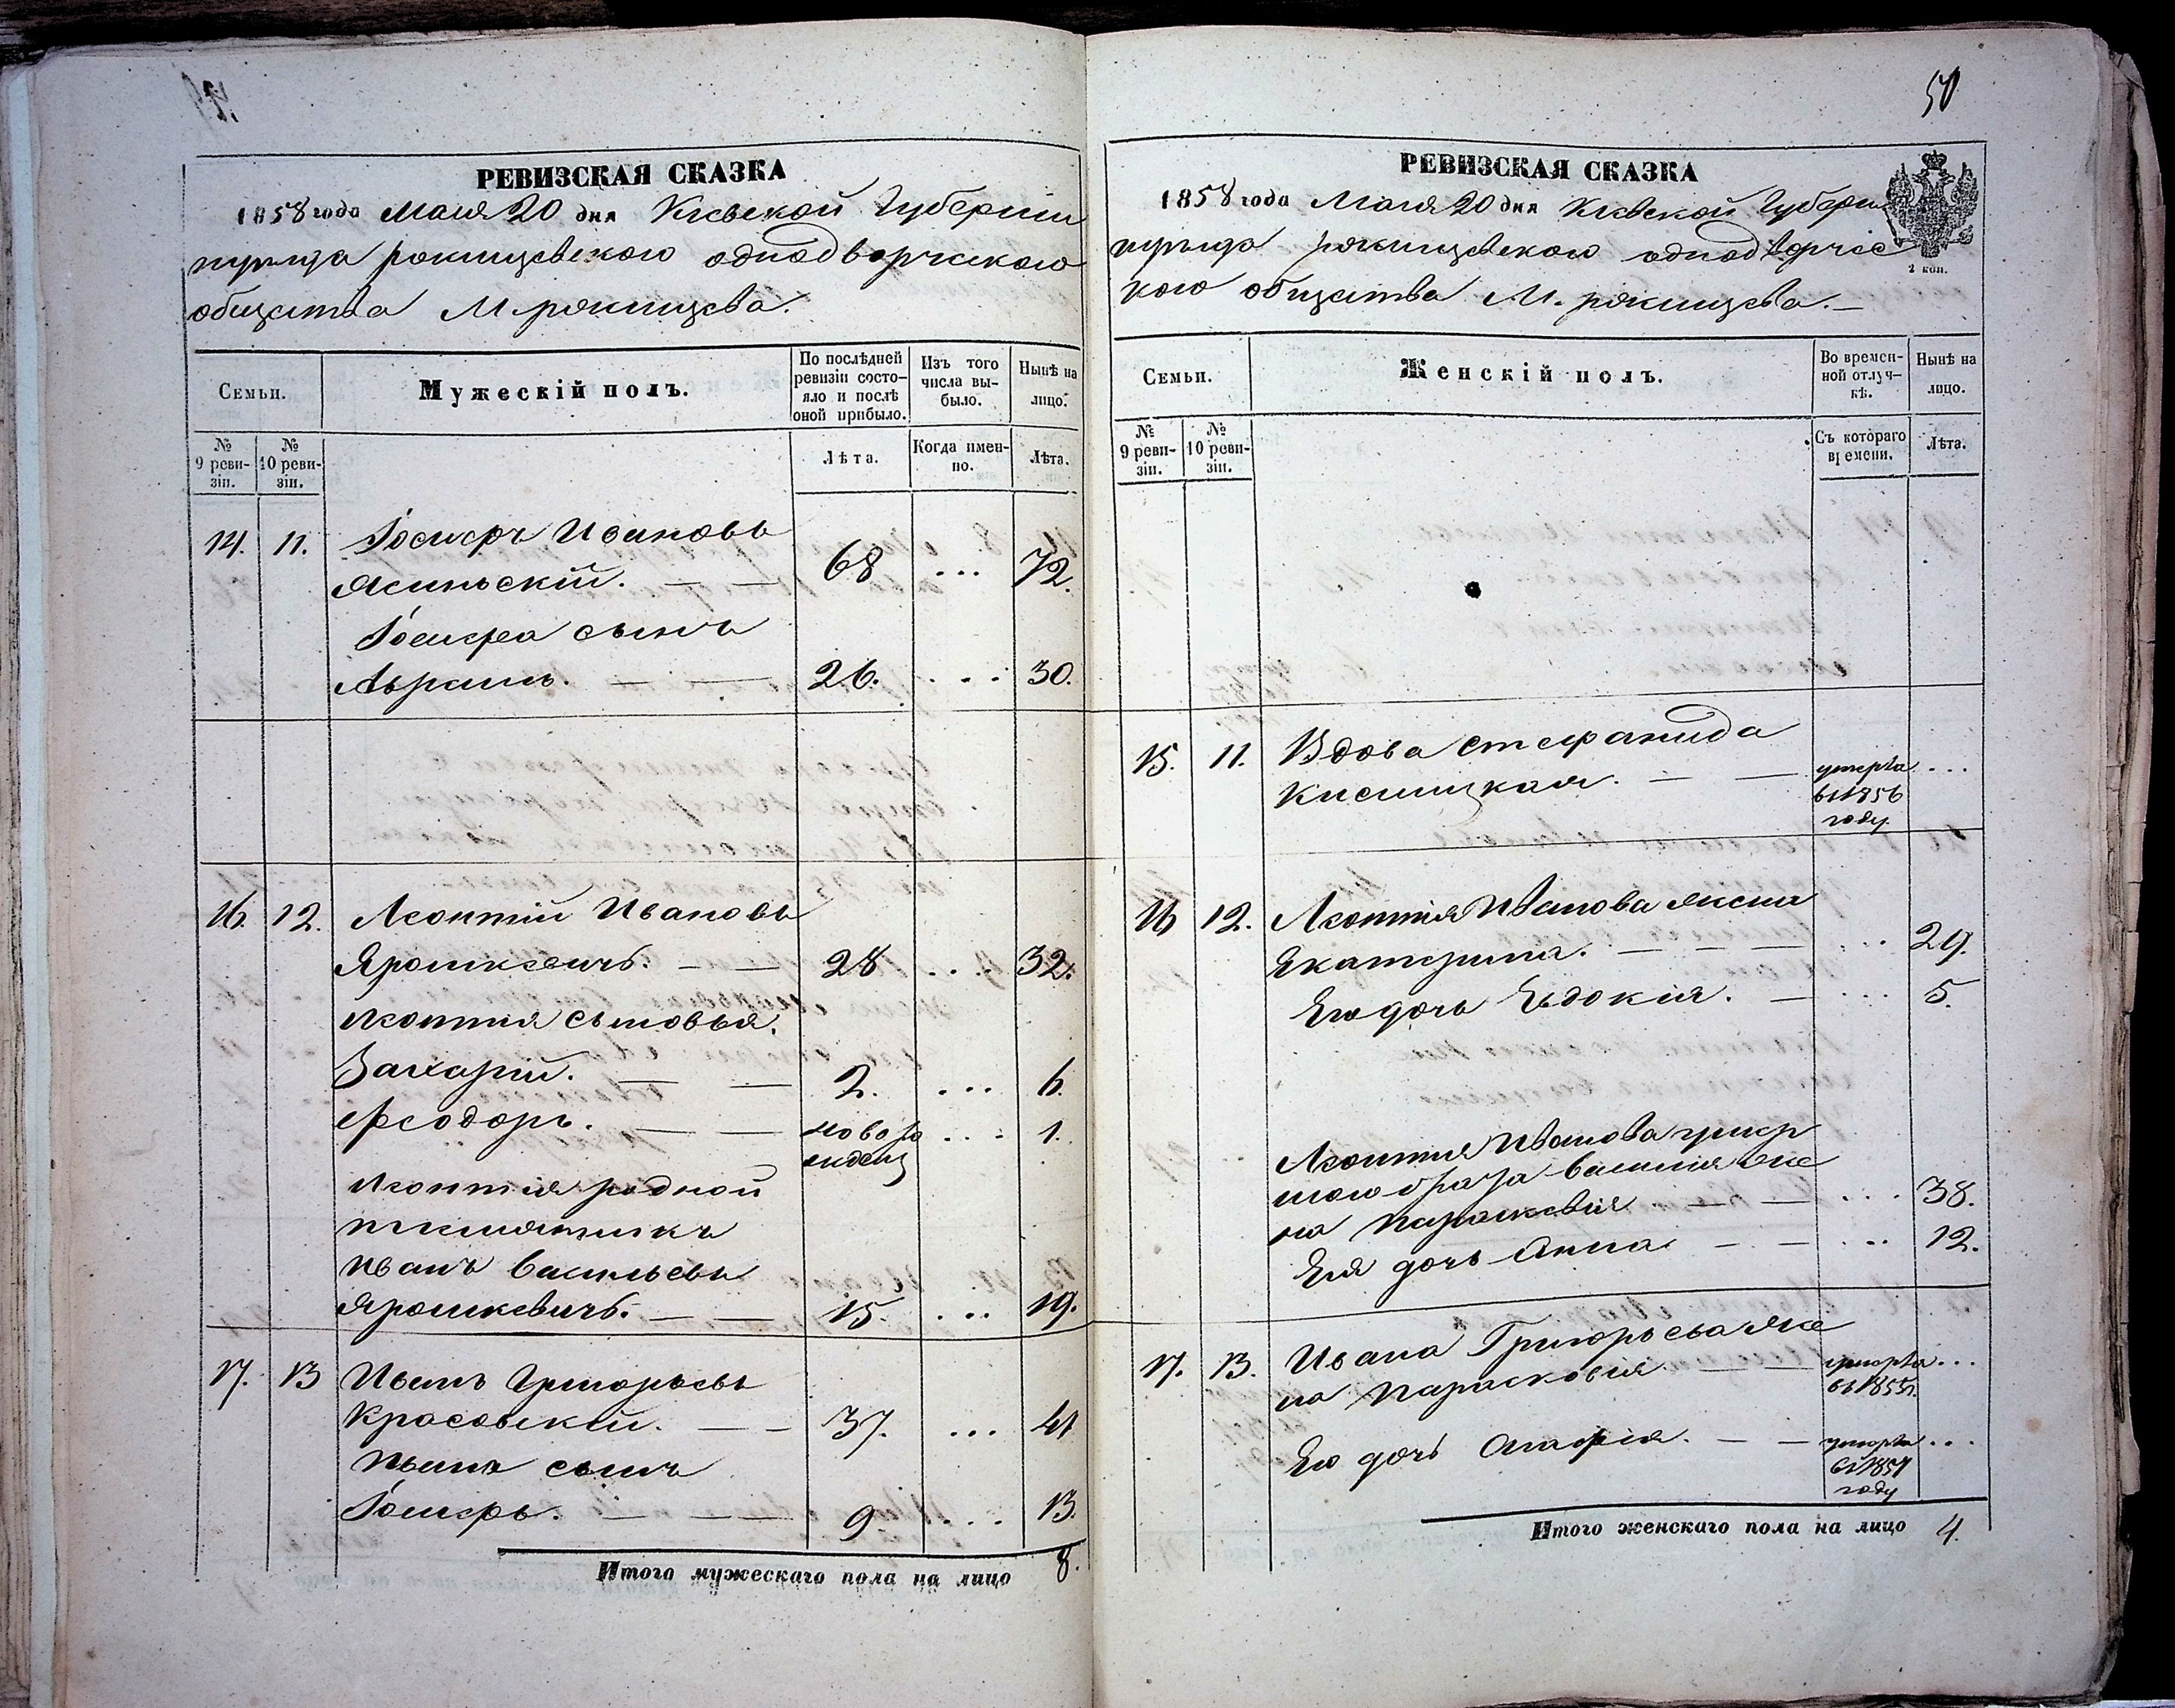 50
РЕВИЗСКАЯ СКАЗКА
1858 года Мая 20 дня Кіевской Губерніи
уѣзда общества М.
Семьи.
Мужескій полъ.
По послѣдней ревизіи состояло и послѣ оной прибыло.
Изъ того числа выбыло.
Нынѣ на лицо.
№ 9 ревизіи.
№ 10 ревизіи.
Лѣта.
Когда именно.
Лѣта.
14. 11. Іосифъ Ивановъ
Ясинскій. — — 68 ... 72.
Іосифа сынъ
Абрамъ. — — 26. ... 30.
16. 12. Леонтій Ивановъ
Ярошкевичъ. — — 28 ... 32.
Леонтія сыновья.
Захарій. — — 2. ... 6.
Феодоръ. — — новорожденъ ... 1.
Леонтія родной
племянникъ
Иванъ Васильевъ
Ярошкевичъ. — — 15. ... 19.
17. 13 Иванъ Григорьевъ
Красовскій. — — 37. ... 41
Ивана сынъ
Іосифъ. — — 9 ... 13.
Итого мужескаго пола на лицо 8.
РЕВИЗСКАЯ СКАЗКА
1858 года Мая 20 дня Кіевской Губерніи
2 коп.
общества М.
Семьи.
Женскій полъ.
Во временной отлучкѣ.
Нынѣ на лицо.
№ 9 ревизіи.
№ 10 ревизіи.
Съ котораго времени.
Лѣта.
15. 11. Вдова Стефанида
— — умерла ...
въ 1856
году.
16 12. Леонтія Иванова жена
Екатерина. — — — ... 29.
Его дочь Евдокія. — ... 5.
Леонтія Иванова умер
шаго брата Василія же
на Параскевія — — ... 38.
Ея дочь Анна — — ... 12.
17. 13. Ивана Григорьева же
на Парасковія — — умерла ...
въ 1855 г.
Его дочь Агафія. — — умерла ...
въ 1857
году
Итого женскаго пола на лицо 4.